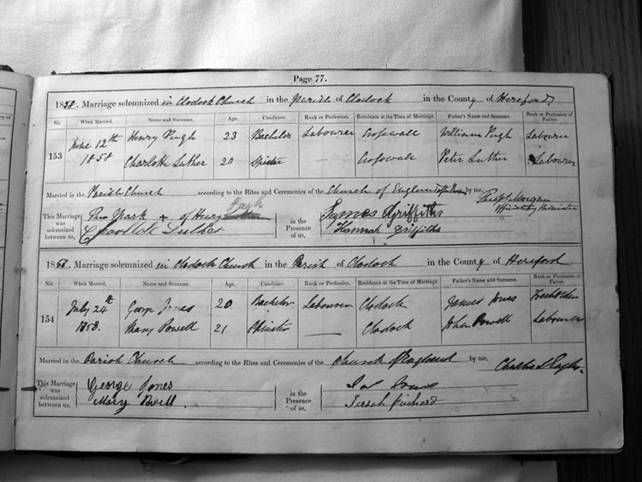 Page 77.
1858. Marriage solemnized in Clodock Church in the Parish of Clodock in the County of Hereford
No. When Married. Name and Surname. Age. Condition. Rank or Profession. Residence at the Time of Marriage. Father's Name and Surname. Rank or Profession of Father.
153 June 12th Henry Pugh 23 Bachelor Labourer William Pugh Labourer
1858 Charlotte Luther 20 Spinster — Peter Luther Labourer
Married in the Parish Church according to the Rites and Ceremonies of the Church of England by me,
This Marriage was solemnized between us, The Mark + of Henry Pugh in the Presence of us, James Griffiths
Charlotte Luther Hannah Griffiths
1858. Marriage solemnized in Clodock Church in the Parish of Clodock in the County of Hereford
No. When Married. Name and Surname. Age. Condition. Rank or Profession. Residence at the Time of Marriage. Father's Name and Surname. Rank or Profession of Father.
154 July 24th George Jones 20 Bachelor Labourer Clodock James Jones Freeholder
1858. Mary Powell 21 Spinster — Clodock John Powell Labourer
Married in the Parish Church according to the Rites and Ceremonies of the Church of England by me,
This Marriage was solemnized between us, George Jones in the Presence of us,
Mary Powell Tirzah Prichard